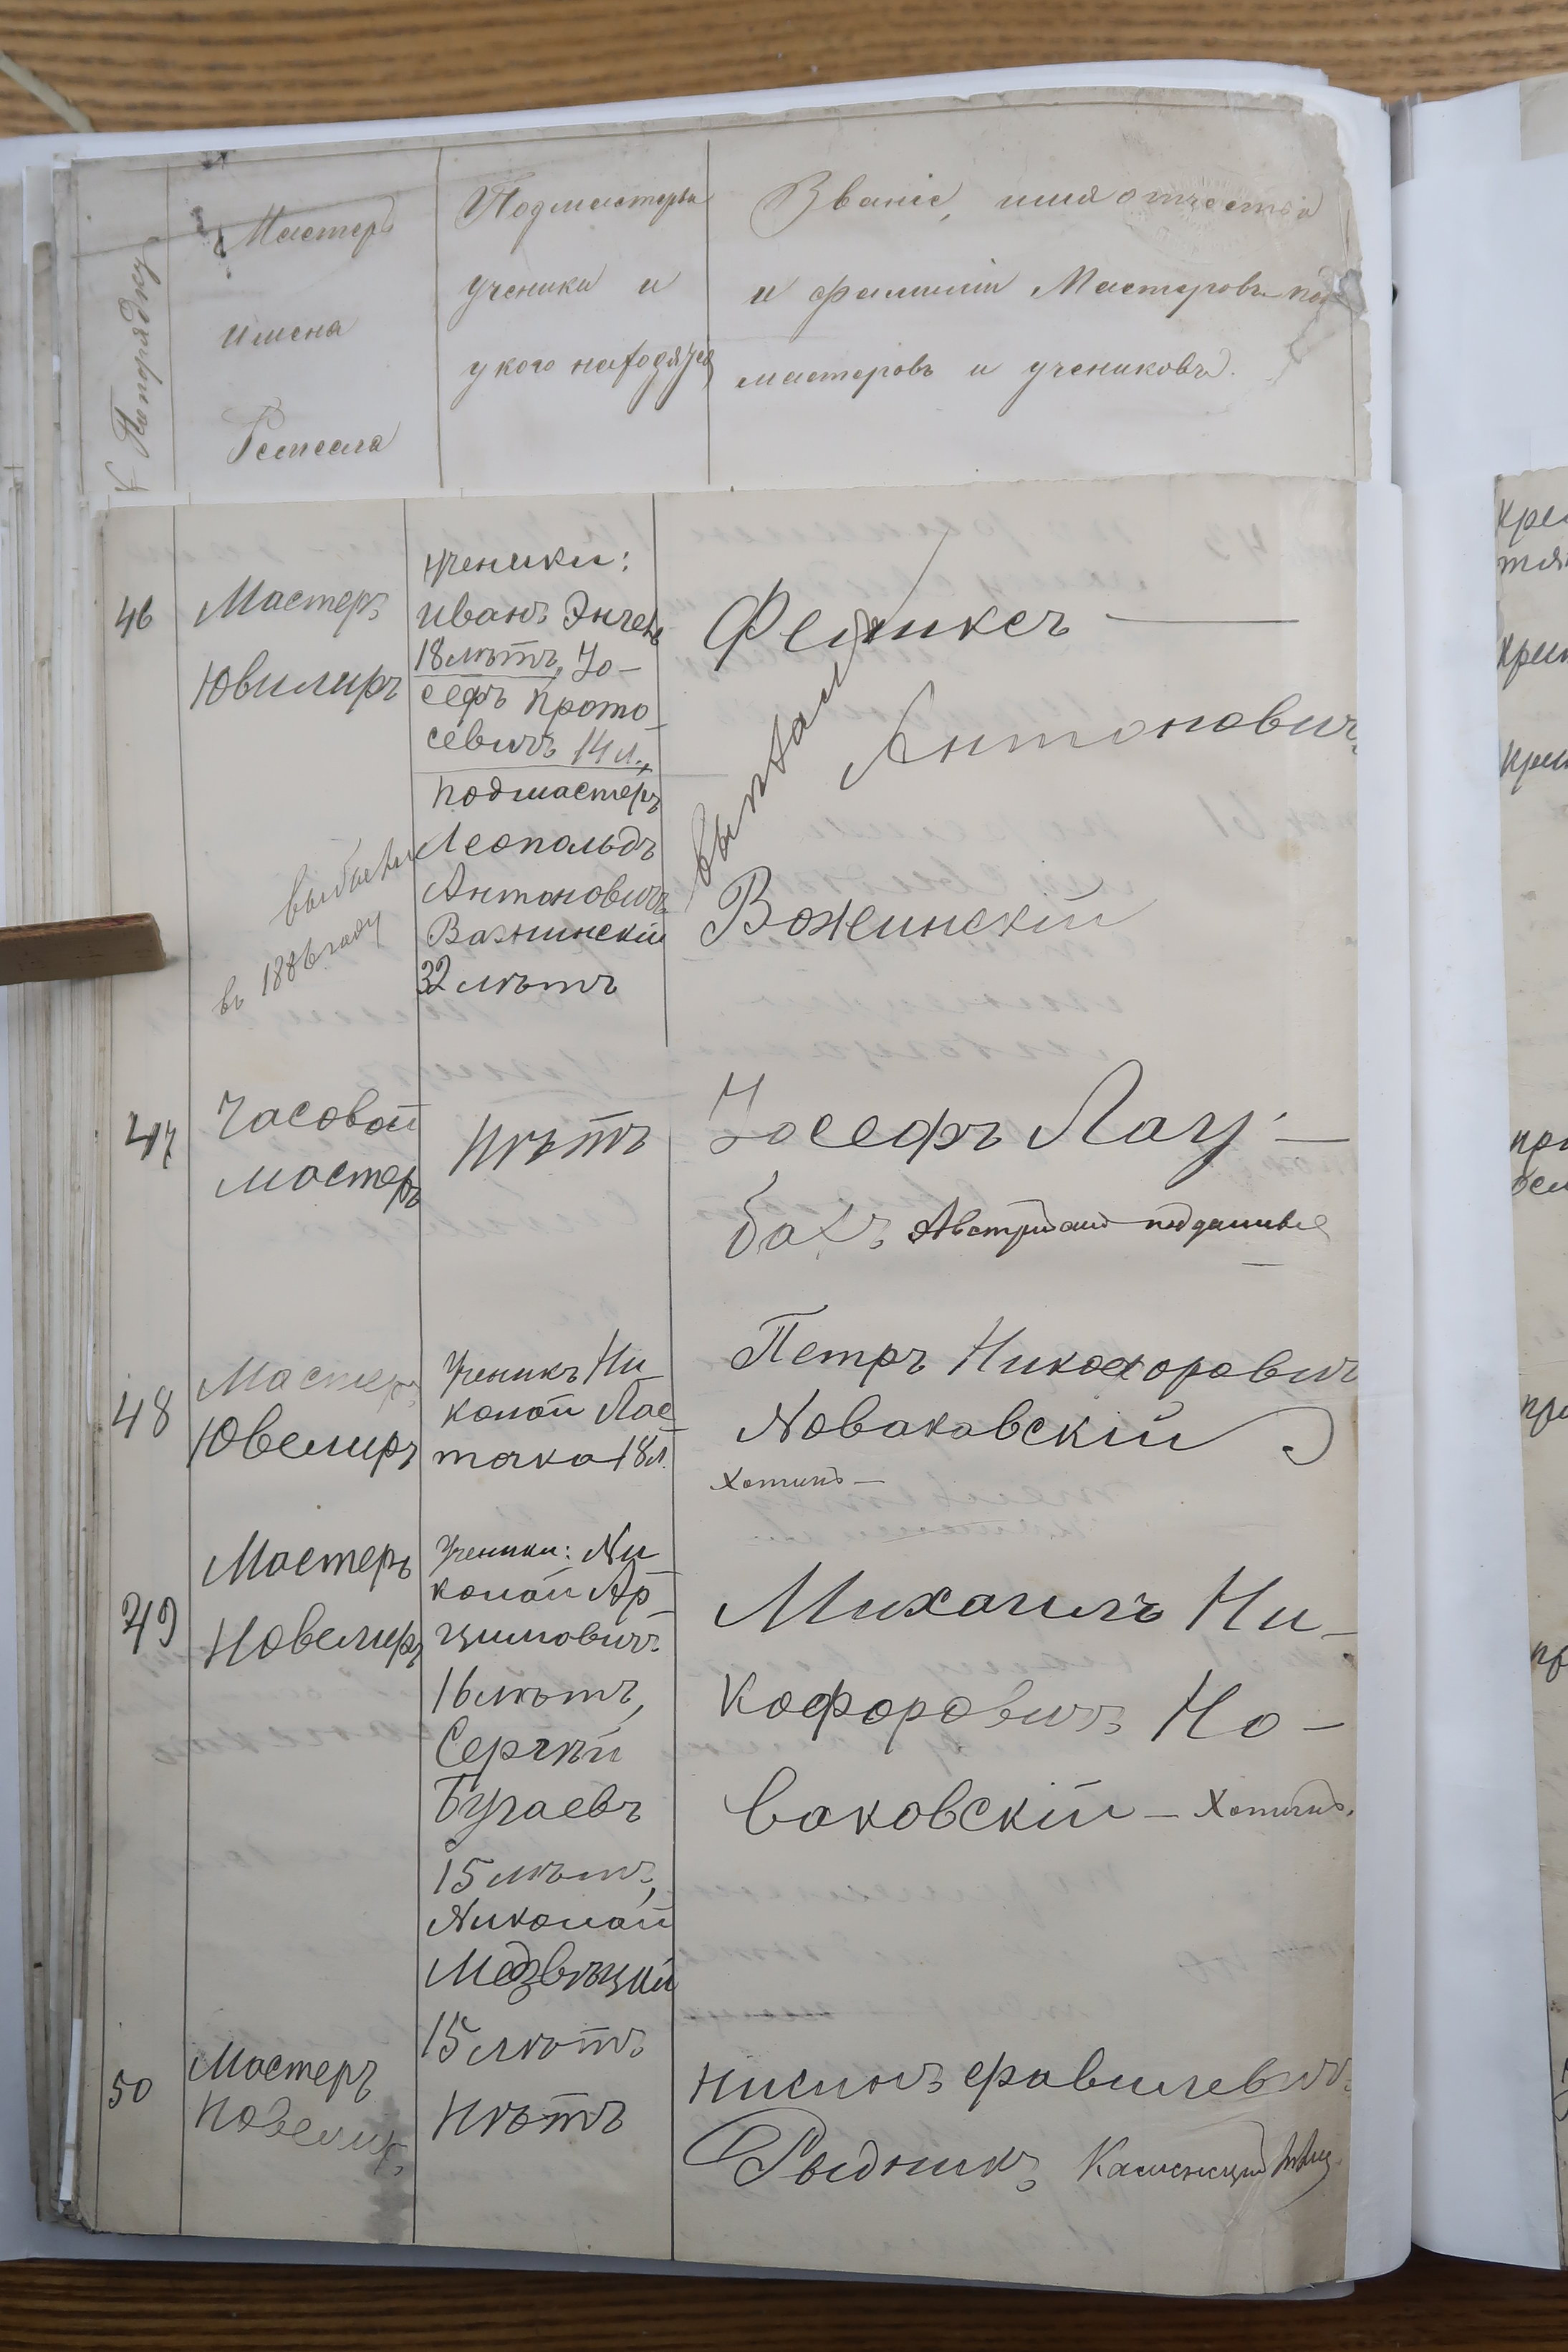 № Попорядку
Мастеръ
имена
Ремесла
Подмастерья
ученики и
у кого находятся
Званіе, имя отчество
и фамиліи Мастеровъ под
мастеровъ и учениковъ.
46
Мастеръ
Ювилиръ
выбылъ
въ 1886 году
Ученики:
Иванъ
18 лѣтъ, Іо-
сефъ Прото-
севичъ 14 л.,
подмастеръ
Леопольдъ
Антоновичъ
Важинскій
32 лѣтъ
Феликсъ
Антоновичъ
Вожинскій
47
Часовой
мастеръ
Нѣтъ
Іосефъ Лау-
бахъ
48
Мастеръ
Ювелиръ
Ученикъ Ни-
колай Лас-
точка 18 л.
Петръ Никофоровичъ
Новаковскій
Хотинъ –
49
Мастеръ
Ювелиръ
Ученики: Ни-
колай Ар-
цимовичъ
16 лѣтъ,
Сергѣй
Бугаевъ
15 лѣтъ,
Николай
Медзвѣцкій
15 лѣтъ
Михаилъ Ни-
кофоровичъ Но-
ваковскій – Хотинъ.
50
Мастеръ
Ювелиръ
Нѣтъ
Нисинъ